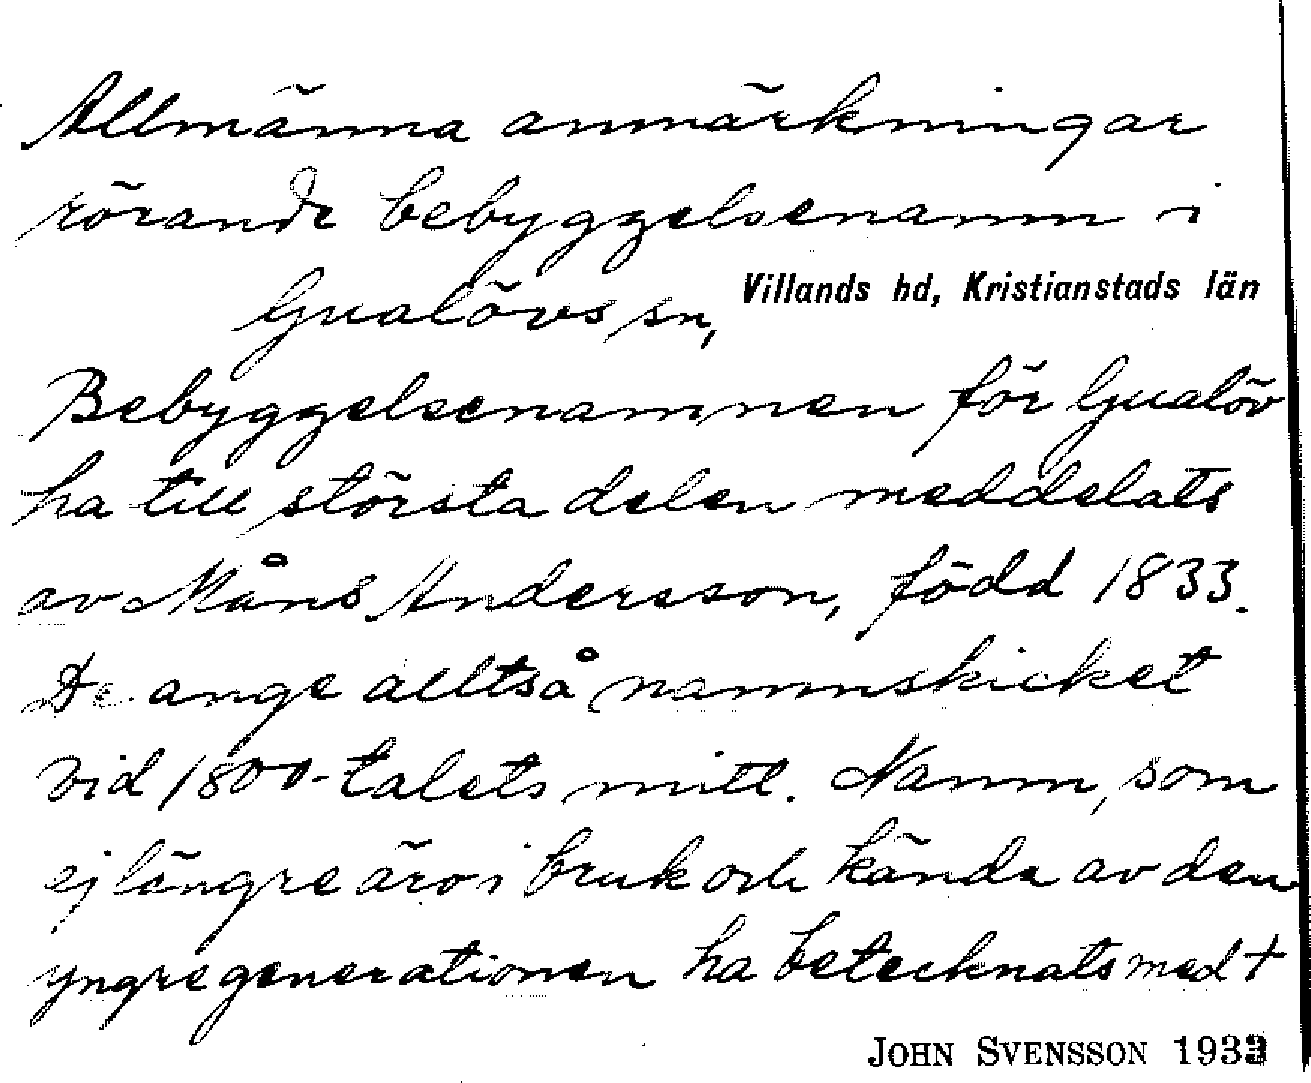 Allmänna anmärkningar
rörande bebyggelsenamn i
Gualövs sn, Villands hd, Kristianstads län
Bebyggelsenamnen för Gualöv
ha till största delen meddelats
av Måns Andersson, född 1833.
De ange alltså namnskicket
vid 1800-talets mitt. Namn, som
ej längre äro i bruk och kända av den
yngre generationen ha betecknats med +
JOHN SVENSSON